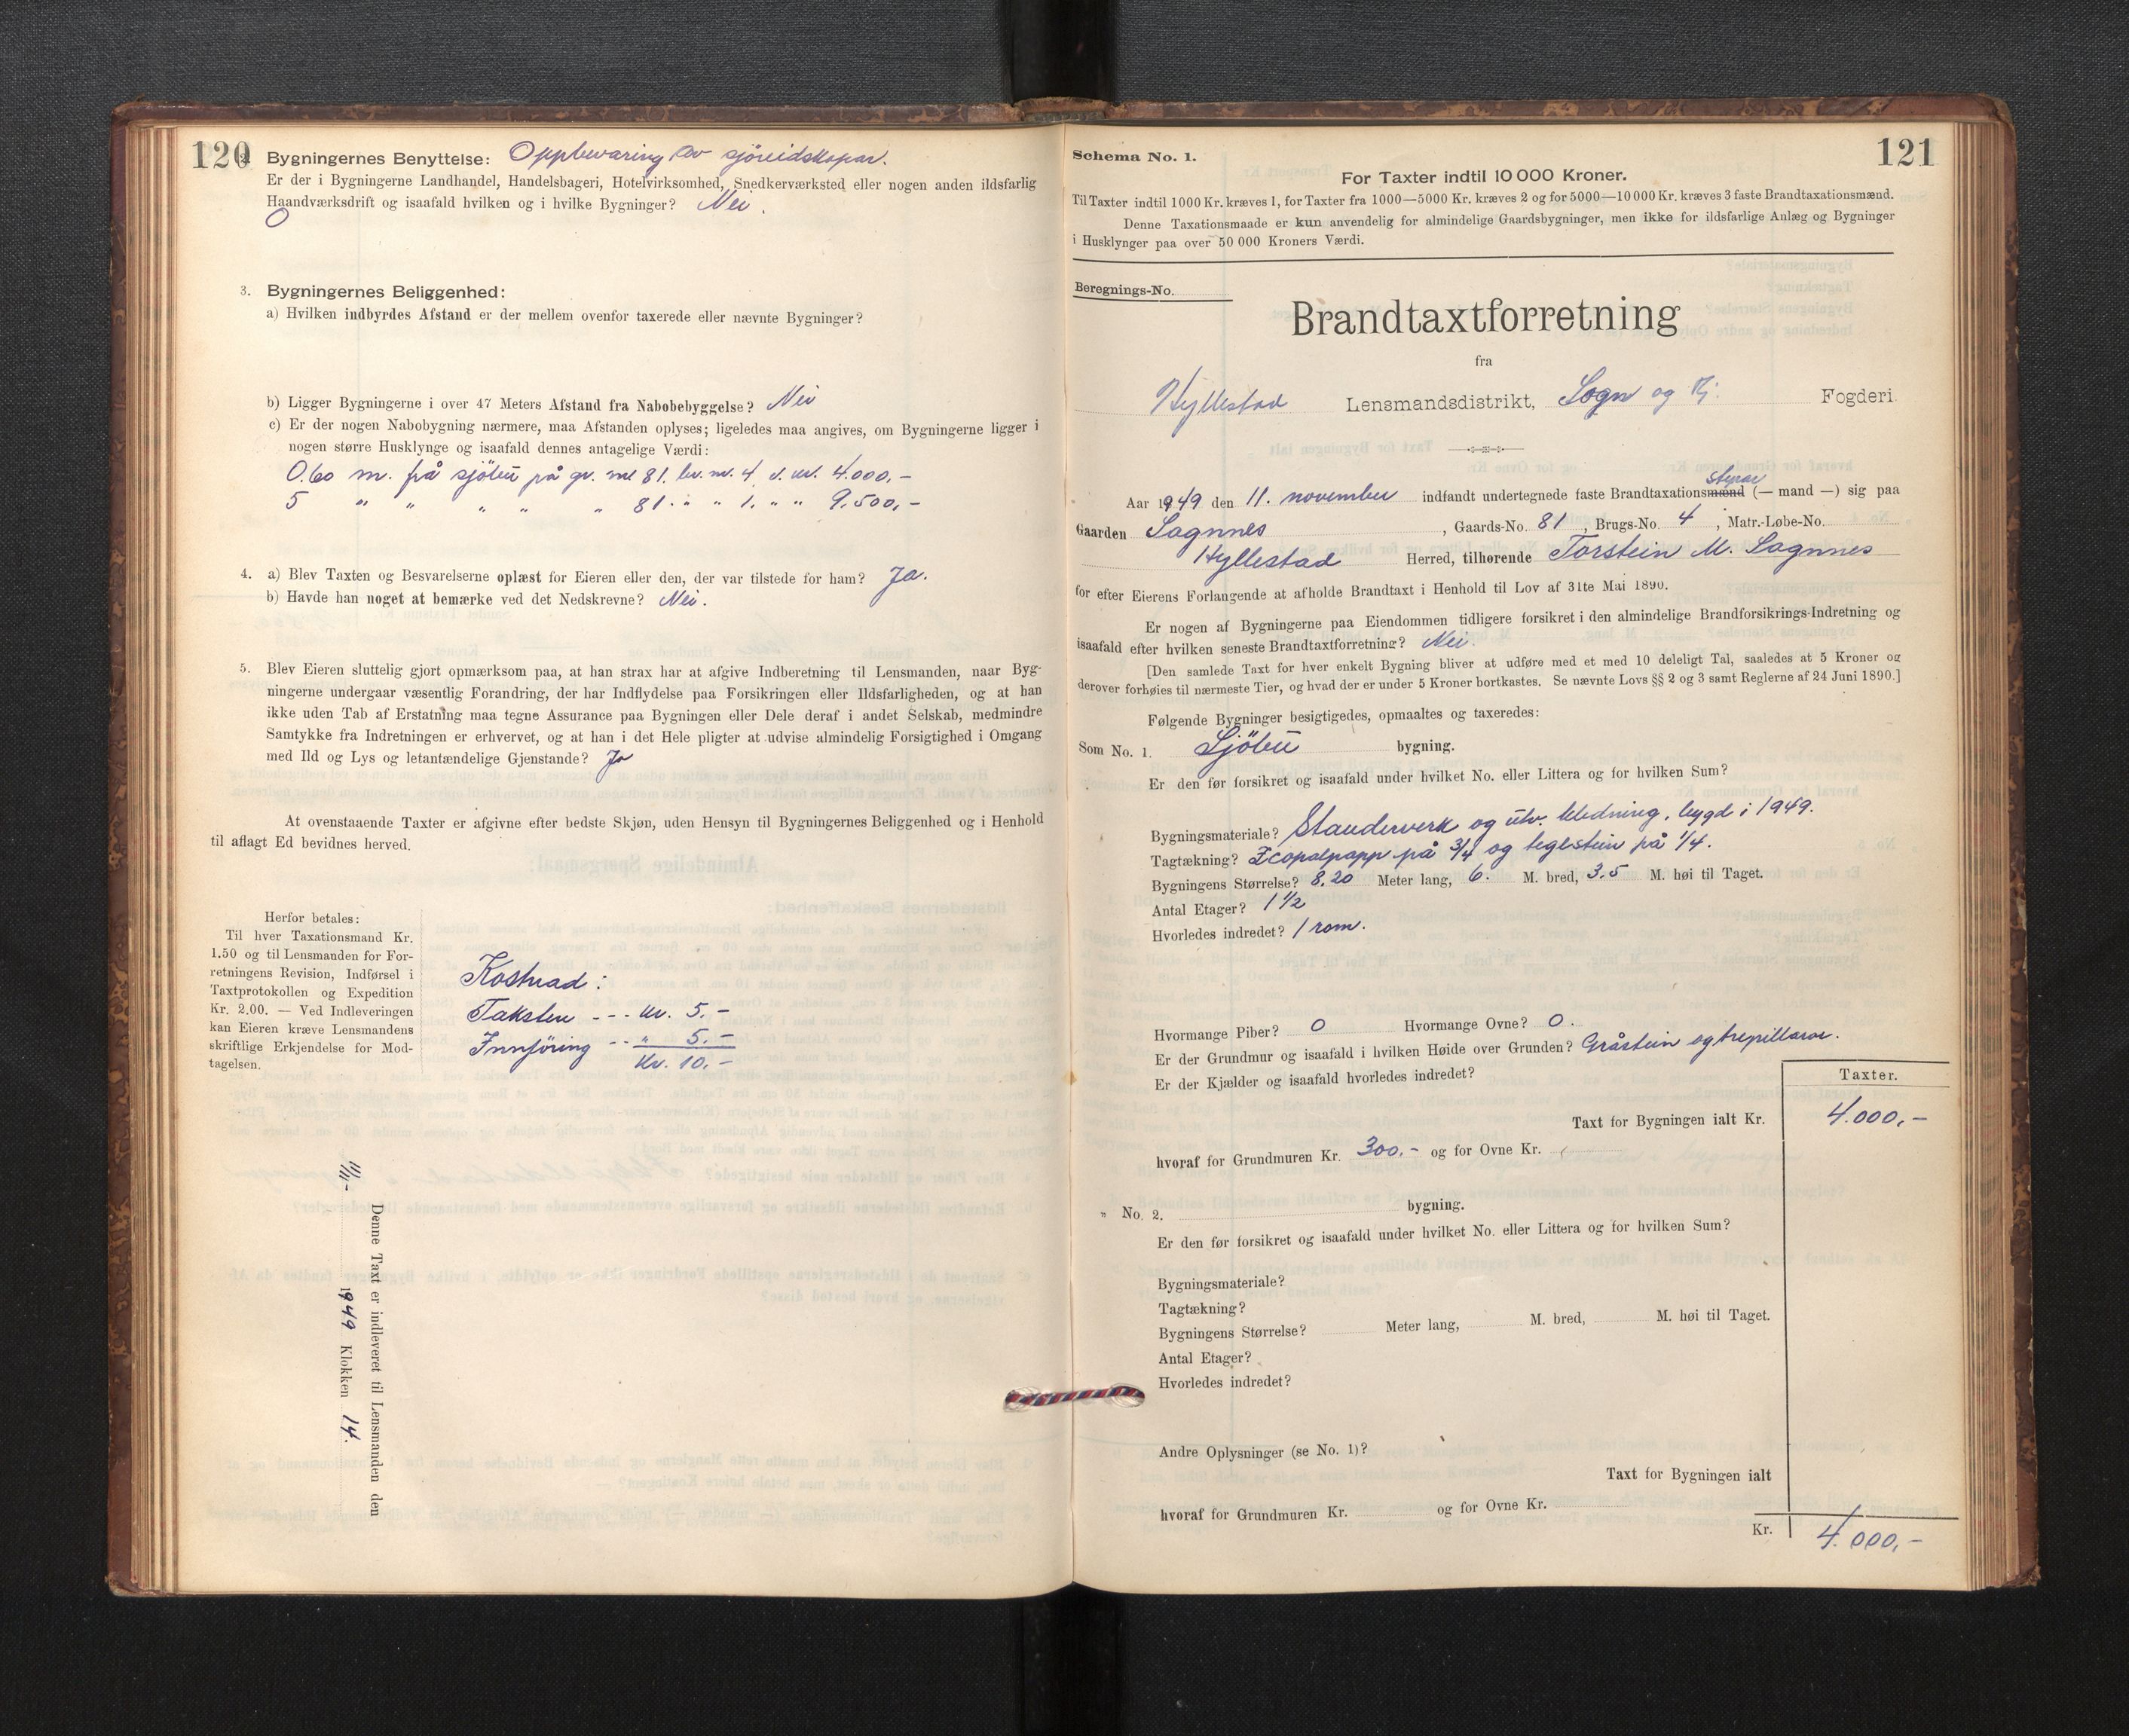 120
2. Bygningernes Benyttelse: Oppbevaring av sjöreidskapar.
Er der i Bygningerne Landhandel, Handelsbageri, Hotelvirksomhed, Snedkerværksted eller nogen anden ildsfarlig
Haandværksdrift og isaafald hvilken og i hvilke Bygninger? Nei.
0
3. Bygningernes Beliggenhed:
a) Hvilken indbyrdes Afstand er der mellem ovenfor taxerede eller nævnte Bygninger?
b) Ligger Bygningerne i over 47 Meters Afstand fra Nabobebyggelse? Nei
c) Er der nogen Nabobygning nærmere, maa Afstanden oplyses; ligeledes maa angives, om Bygningerne ligger i
nogen større Husklynge og isaafald dennes antagelige Værdi:
0.60 m. frå sjöbu på gr. nr 81. br. nr. 4, v. kr. 4.000,-
5 " " " " " 81. " " 1. " " 9.500,-
4. a) Blev Taxten og Besvarelserne oplæst for Eieren eller den, der var tilstede for ham? Ja.
b) Havde han noget at bemærke ved det Nedskrevne? Nei.
5. Blev Eieren sluttelig gjort opmærksom paa, at han strax har at afgive Indberetning til Lensmanden, naar Byg-
ningerne undergaar væsentlig Forandring, der har Indflydelse paa Forsikringen eller Ildsfarligheden, og at han
ikke uden Tab af Erstatning maa tegne Assurance paa Bygningen eller Dele deraf i andet Selskab, medmindre
Samtykke fra Indretningen er erhvervet, og at han i det Hele pligter at udvise almindelig Forsigtighed i Omgang
med Ild og Lys og letantændelige Gjenstande? Ja
At ovenstaaende Taxter er afgivne efter bedste Skjøn, uden Hensyn til Bygningernes Beliggenhed og i Henhold
til aflagt Ed bevidnes herved.
Herfor betales:
Til hver Taxationsmand Kr.
1.50 og til Lensmanden for For-
retningens Revision, Indførsel i
Taxtprotokollen og Expedition
Kr. 2.00. — Ved Indleveringen
kan Eieren kræve Lensmandens
skriftlige Erkjendelse for Mod-
tagelsen.
Kostnad:
Taksten --- kr. 5.-
Innföring -- " 5.-
Kr. 10,-
Denne Taxt er indleveret til Lensmanden den
11/11- 1949 Klokken 14.
121
Schema No. 1.
For Taxter indtil 10 000 Kroner.
Til Taxter indtil 1000 Kr. kræves 1, for Taxter fra 1000—5000 Kr. kræves 2 og for 5000—10000 Kr. kræves 3 faste Brandtaxationsmænd.
Denne Taxationsmaade er kun anvendelig for almindelige Gaardsbygninger, men ikke for ildsfarlige Anlæg og Bygninger
i Husklynger paa over 50 000 Kroners Værdi.
Beregnings-No.
Brandtaxtforretning
fra
Hyllestad Lensmandsdistrikt, Sogn og Fj. Fogderi
styrar
Aar 1949 den 11. november indfandt undertegnede faste Brandtaxationsmænd (— mand —) sig paa
Gaarden Sagnnes, Gaards-No. 81, Brugs-No. 4, Matr.-Løbe-No.
Hyllestad Herred, tilhørende Torstein M. Sagnnes
for efter Eierens Forlangende at afholde Brandtaxt i Henhold til Lov af 31te Mai 1890.
Er nogen af Bygningerne paa Eiendommen tidligere forsikret i den almindelige Brandforsikrings-Indretning og
isaafald efter hvilken seneste Brandtaxtforretning? Nei.
[Den samlede Taxt for hver enkelt Bygning bliver at udføre med et med 10 deleligt Tal, saaledes at 5 Kroner og
derover forhøies til nærmeste Tier, og hvad der er under 5 Kroner bortkastes. Se nævnte Lovs §§ 2 og 3 samt Reglerne af 24 Juni 1890.]
Følgende Bygninger besigtigedes, opmaaltes og taxeredes:
Som No. 1. Sjöbu bygning.
Er den før forsikret og isaafald under hvilket No. eller Littera og for hvilken Sum?
Bygningsmateriale? Standerverk og utv. kledning, bygd i 1949.
Tagtækning? Icopalpapp på 3/4 og teglstein på 1/4.
Bygningens Størrelse? 8,20 Meter lang, 6. M. bred, 3.5 M. høi til Taget.
Antal Etager? 1 1/2
Hvorledes indredet? 1 rom.
Hvormange Piber? 0 Hvormange Ovne? 0.
Er der Grundmur og isaafald i hvilken Høide over Grunden? Gråstein og trepillarar.
Er der Kjælder og isaafald hvorledes indredet?
Taxter.
Taxt for Bygningen ialt Kr. 4.000,-
hvoraf for Grundmuren Kr. 300,- og for Ovne Kr.
" No. 2. bygning.
Er den før forsikret og isaafald under hvilket No. eller Littera og for hvilken Sum?
Bygningsmateriale?
Tagtækning?
Bygningens Størrelse? Meter lang, M. bred, M. høi til Taget.
Antal Etager?
Hvorledes indredet?
Andre Oplysninger (se No. 1)?
Taxt for Bygningen ialt
hvoraf for Grundmuren Kr. og for Ovne Kr.
Kr. 4.000,-